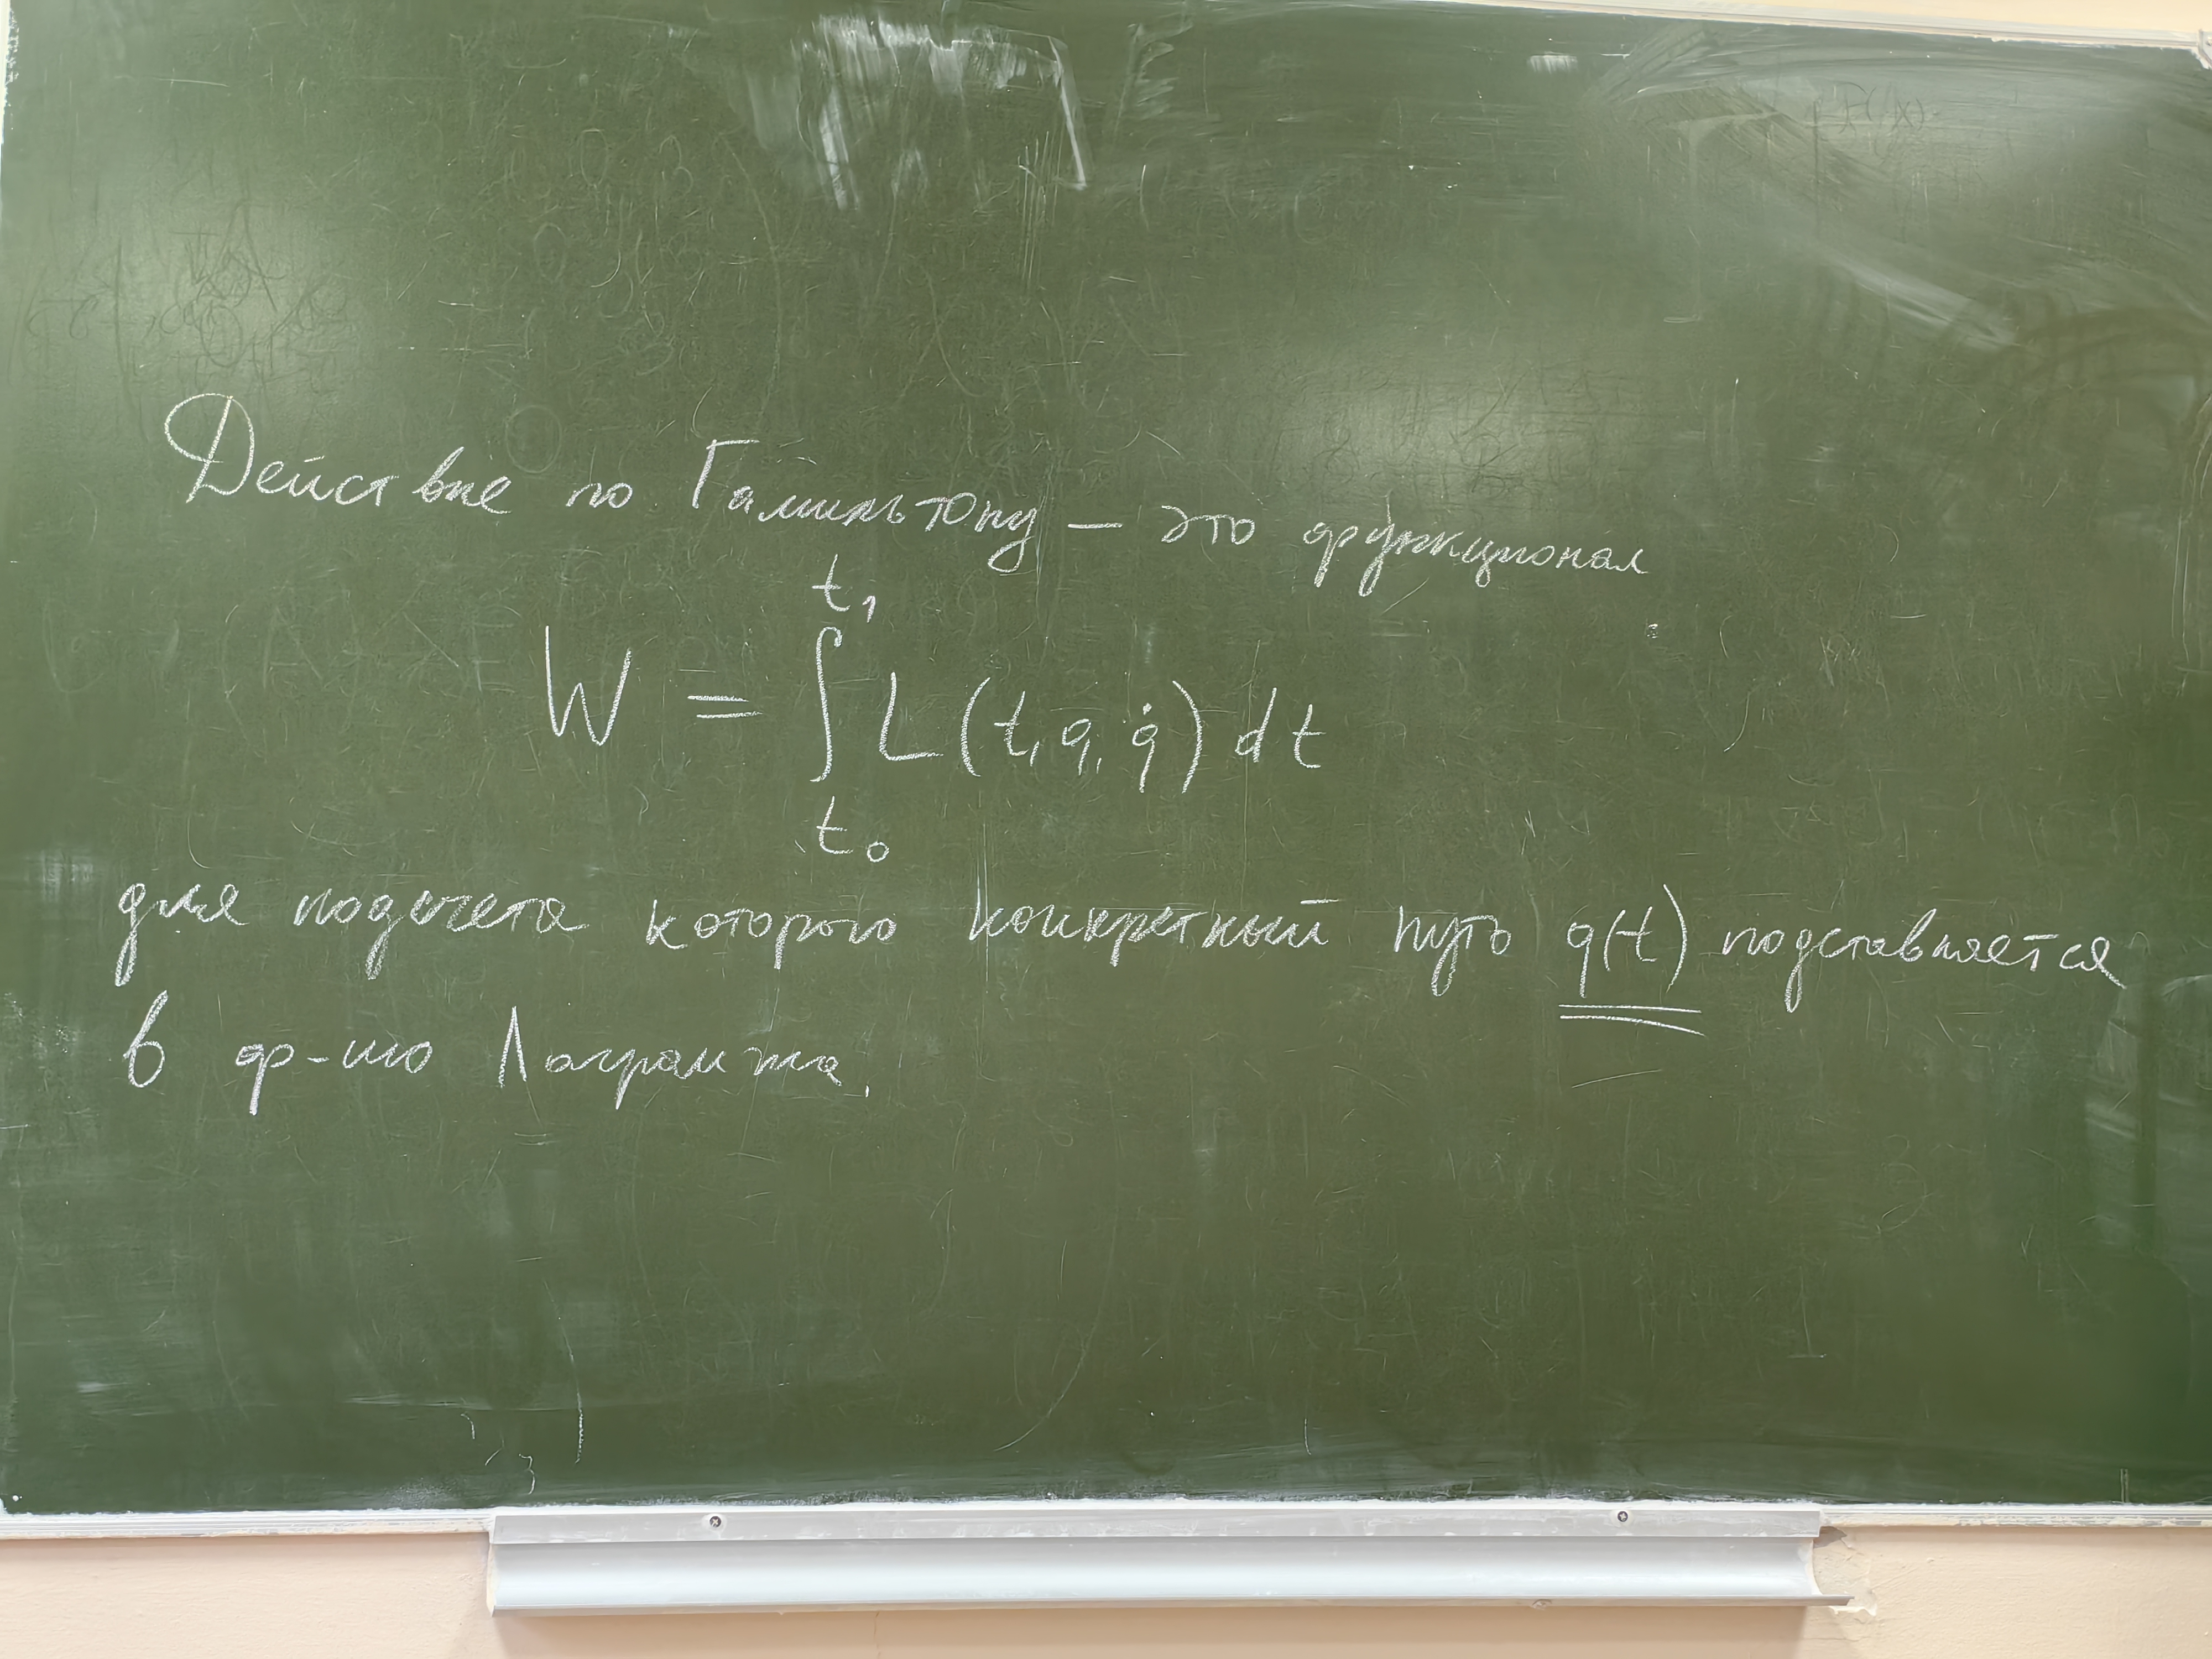 Действие по Гамильтону — это функционал
W = ∫_{t_0}^{t_1} L(t, q, q̇) dt
для подсчета которого конкретный путь q(t) подставляется
в ф-ию Лагранжа.